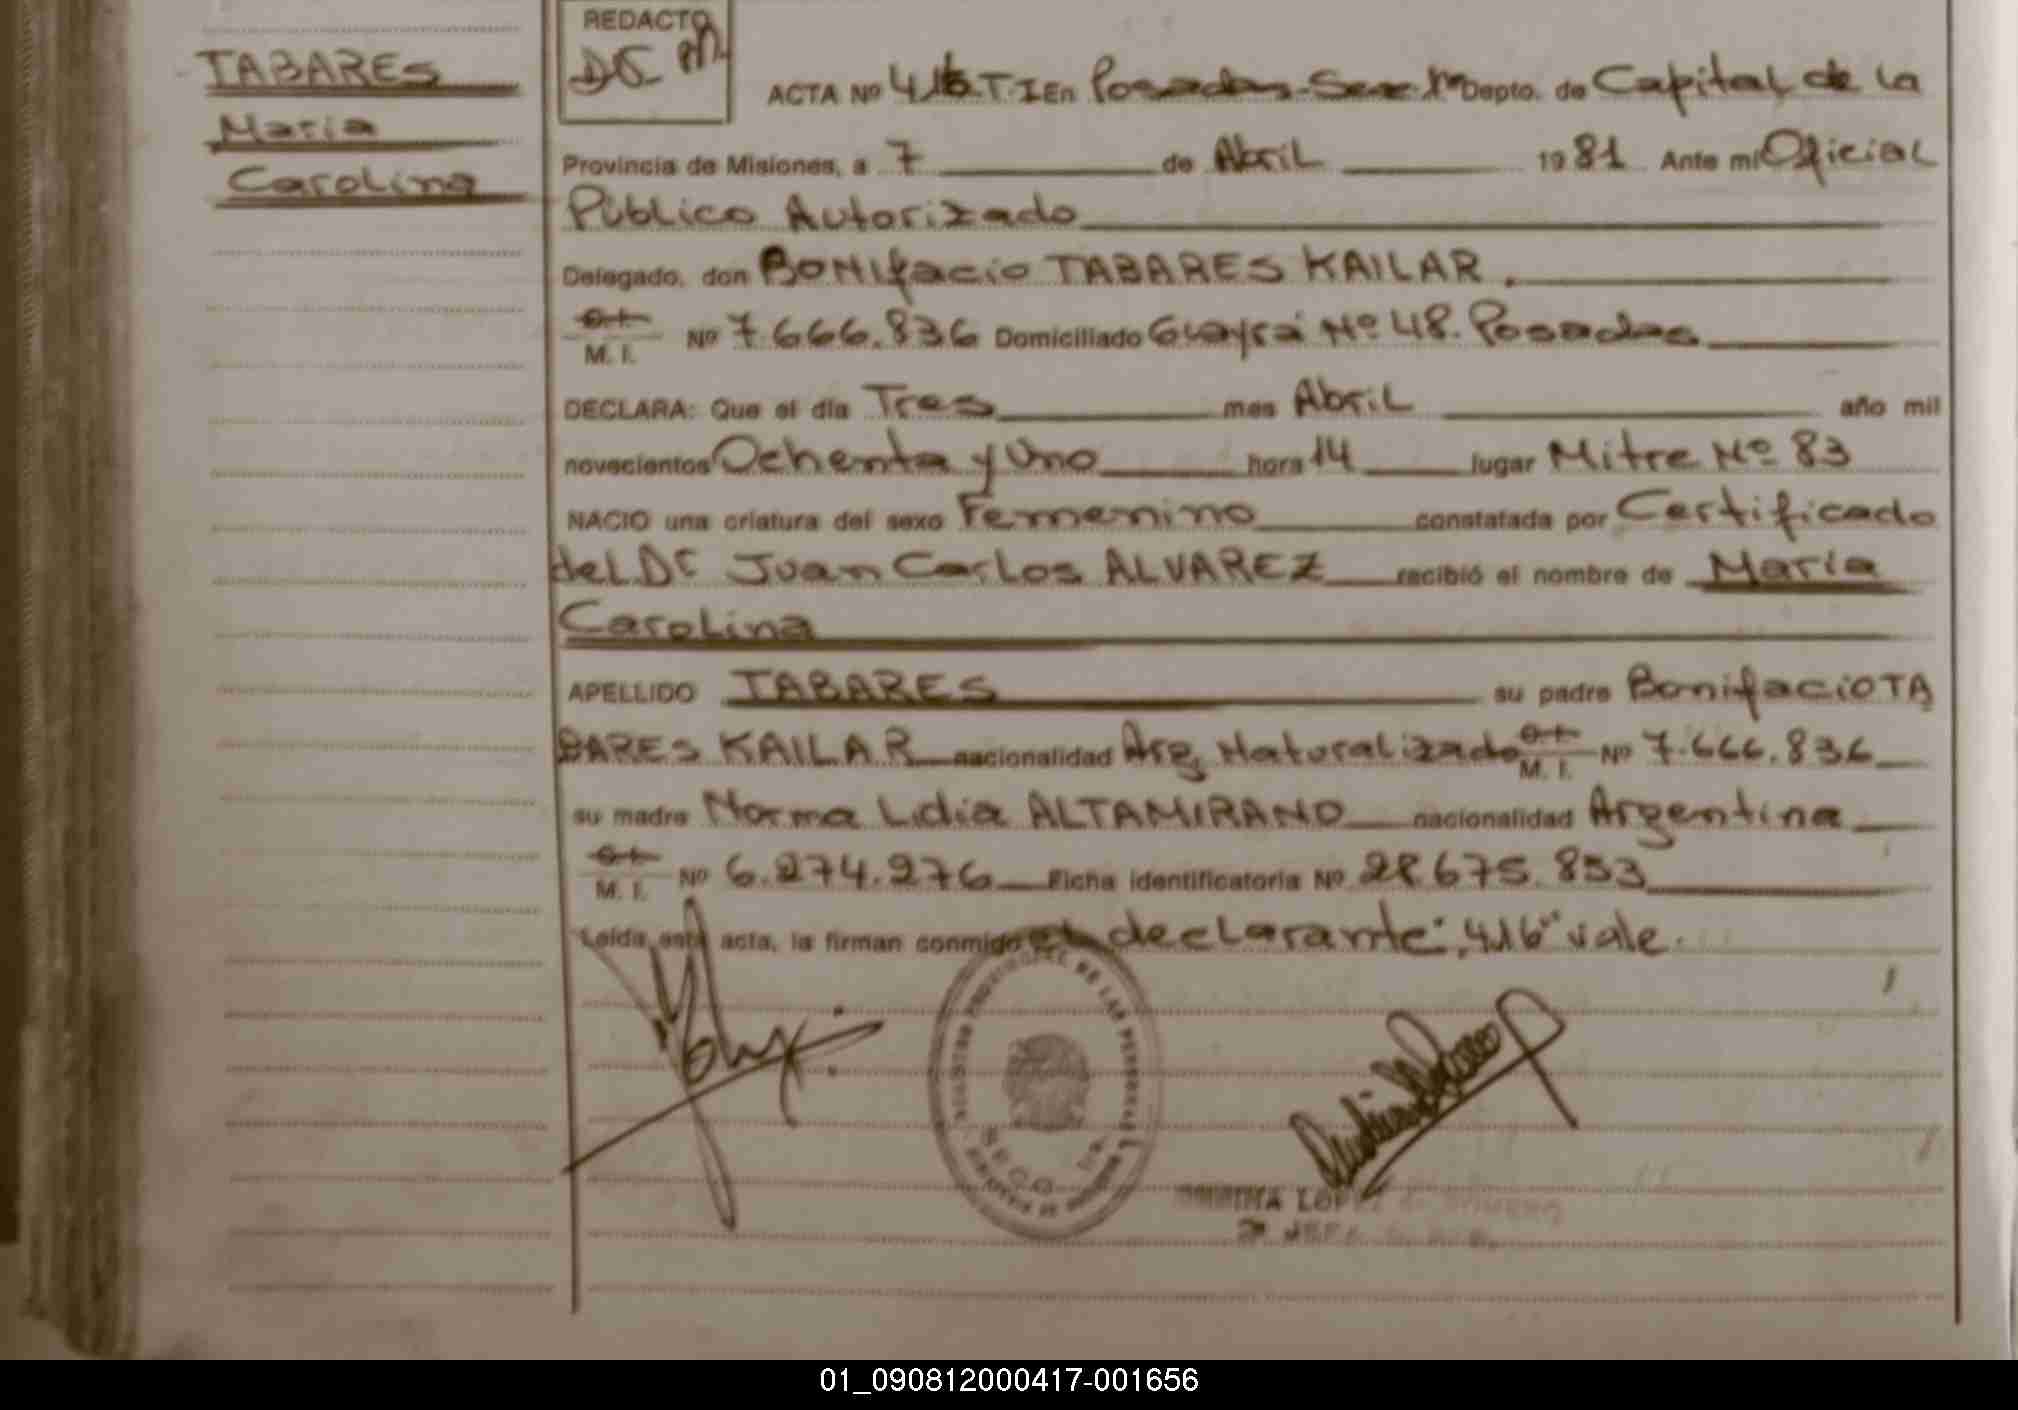 REDACTO
TABARES
Maria
Carolina
ACTA Nº 416 T. I En Posadas-Secc 1ª Depto. de Capital de la
Provincia de Misiones, a 7 de Abril 1981 Ante mi Oficial
Público Autorizado
Delegado, don Bonifacio TABARES KAILAR.
M. I. Nº 7.666.836 Domiciliado Guayrá Nº 48. Posadas
DECLARA: Que el día Tres mes Abril año mil
novecientos Ochenta y Uno hora 14 lugar Mitre Nº 83
NACIO una criatura del sexo Femenino constatada por Certificado
del Dr Juan Carlos ALVAREZ recibió el nombre de María
Carolina
APELLIDO TABARES su padre Bonifacio TA
BARES KAILAR nacionalidad Arg. Naturalizado M. I. Nº 7.666.836
su madre Norma Lidia ALTAMIRANO nacionalidad Argentina
M. I. Nº 6.274.276 Ficha identificatoria Nº 28.675.853
Leída esta acta, la firman conmigo el declarante: "416" vale.
LOPEZ
01_090812000417-001656